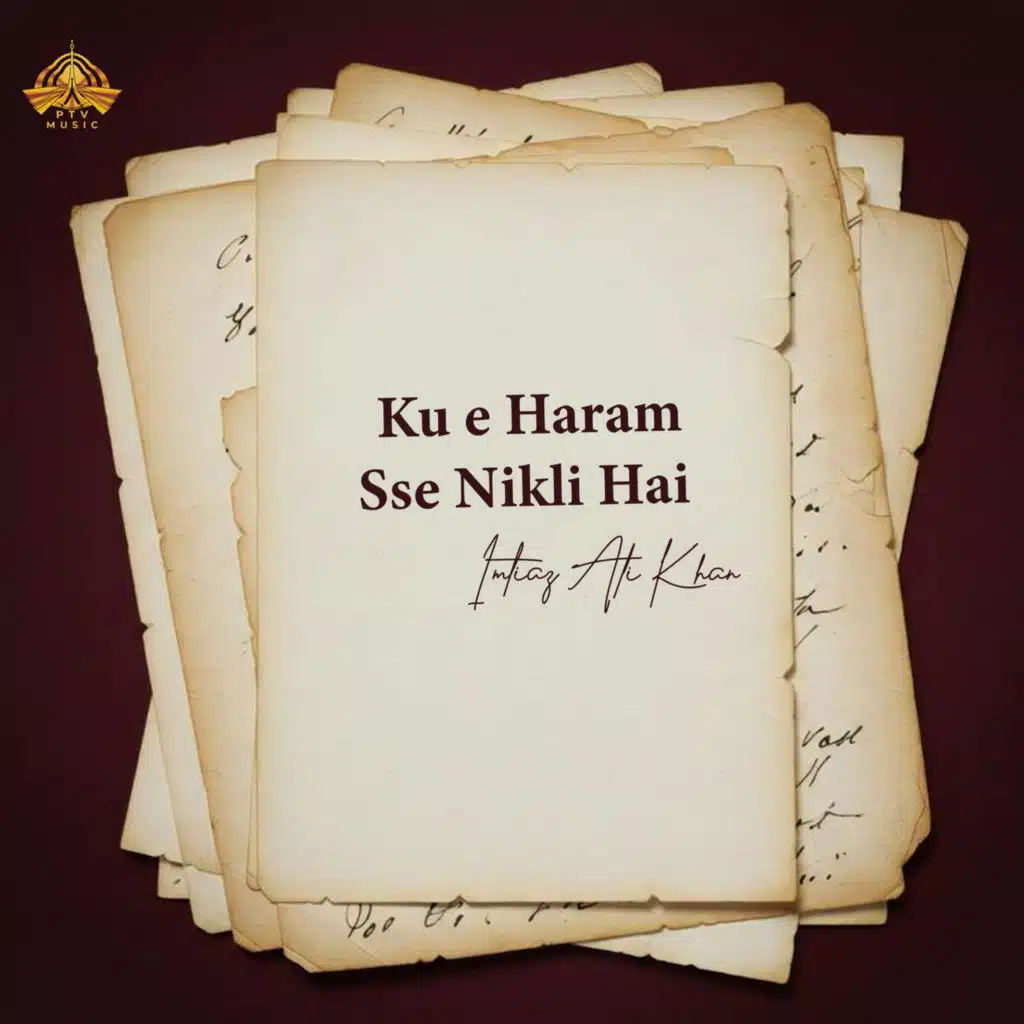 PTV
MUSIC
Ku e Haram
Sse Nikli Hai
Imtiaz Ali Khan